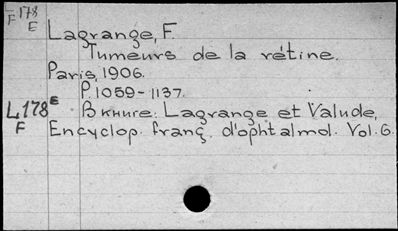 F 178
E
Lagrange, F.
Tumeurs de la rétine.
Paris, 1906.
P. 1059-1137.
L178E
F
В книге: Lagrange et Valude,
Encyclop. franç. d'ophtalmol. Vol. 6.